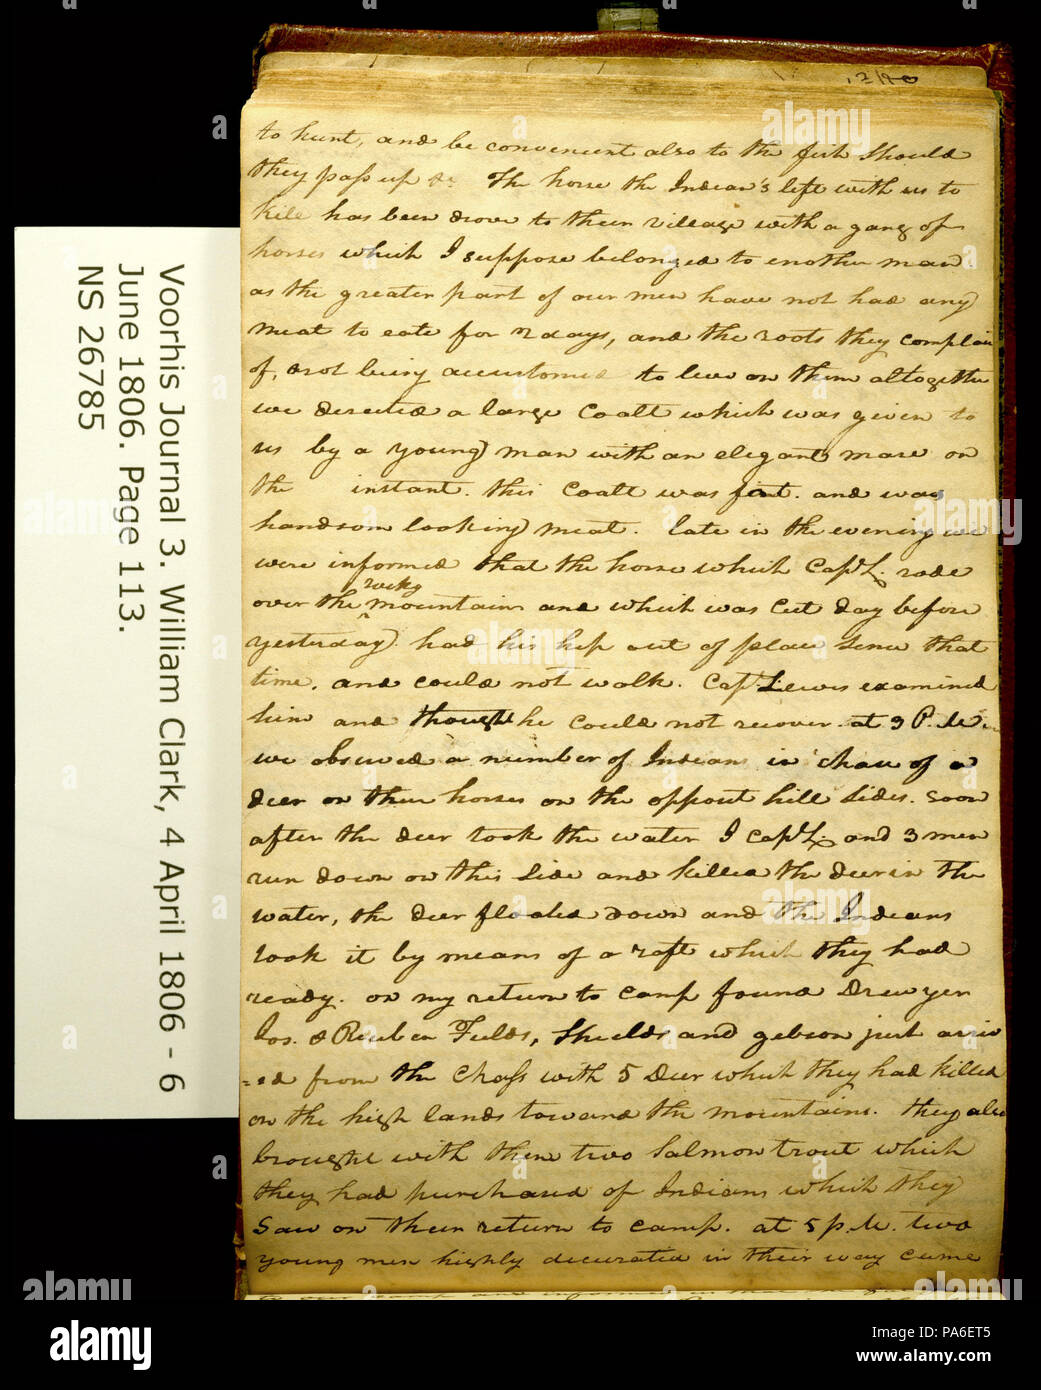 to hunt, and be convenient also to the fish Should
they pass up &c. The horse the Indian's left with us to
kill has been drove to their village with a gang of
horses which I suppose belonged to another man.
as the greater part of our men have not had any
meat to eate for 2 days, and the roots they complain
of, not being accustomed to live on them altogether
we directed a large Coalt which was given to
us by a young man with an elegant mare on
the instant. this Coalt was fat and was
handsom looking meat. late in the evening we
were informed that the horse which Capt. L. rode
over the rocky mountains and which was Cut day before
yesterday had his hip out of place Since that
time, and could not walk. Capt. Lewis examined
him and thought he could not recover. at 3 P. M.
we obsurved a number of Indians in chase of a
deer on their horses on the opposit hill Sides. Soon
after the deer took the water I Capt. L. and 3 men
run down on this Side and killed the deer in the
water, the deer floated down and the Indians
took it by means of a raft which they had
ready. on my return to camp found Drewyer
Jos. & Reuben Fields, Shields and gibson just arriv
=ed from the Chass with 5 Deer which they had killed
on the high lands toward the mountains. they also
brought with them two Salmon trout which
they had purchased of Indians which they
Saw on their return to camp. at 5 p. M. two
young men highly decurated in their way came
Voorhis Journal 3. William Clark, 4 April 1806 - 6
June 1806. Page 113.
NS 26785
alamy
Image ID: PA6ET5
www.alamy.com